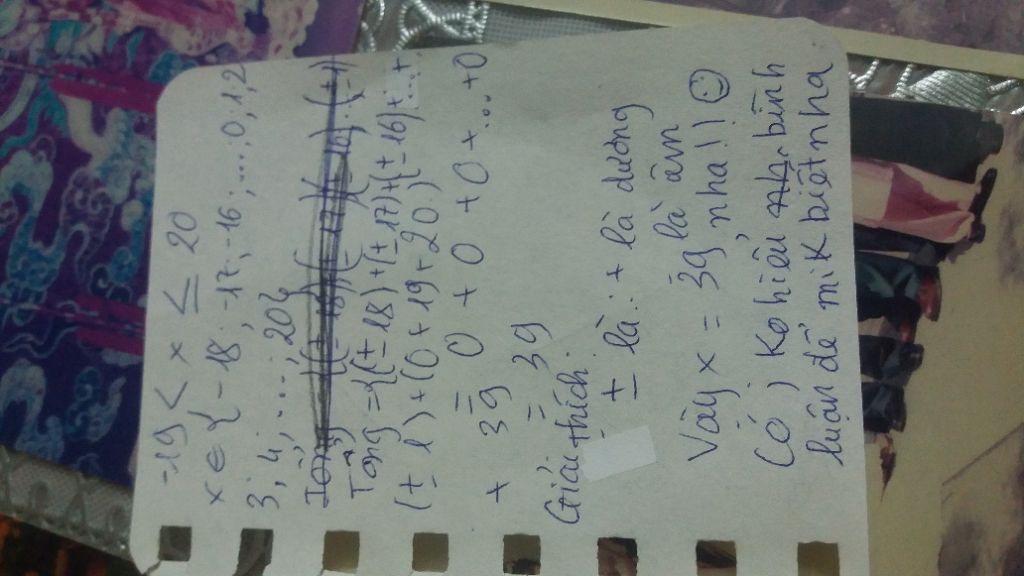 -19 < x ≤ 20
x ∈ { -18; -17; -16; .... 0, 1, 2
3; 4; ....; 20}
Tổng
Tổng = {(± 18) + (± 17) + (± 16) + ... +
(± 1) + (0 + 19 + 20)
= 0 + 0 + 0 + 0 + ... + 0
+ 39
= 39
Giải thích:
± là: + là dương
- là âm
Vậy x = 39 nha!! ☺
Có j ko hiểu bình
luận để mik biết nha